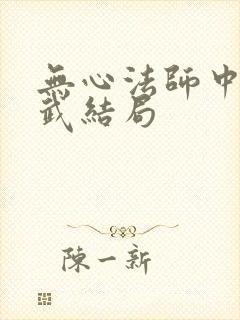 無心法師中
武結局
陳一新